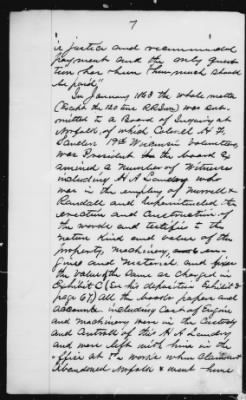 7
is justice and recommended
payment and the only ques
tion has been "how much should
be paid"
In January 1863 the whole matter
was sub
mitted to a Board of Inquiry at
Norfolk of which Colonel H. T.
Sanders 19th Wisconsin Volunteers
was President. The board ex
amined a number of witnesses
including H. A. who
was in the employ of
Randall and Superintended the
erection and construction of
the works and testifies to the
nature kind and value of the
property, machinery, and en
gine and material and fixes
the value of the same as charged in
Exhibit C (See his deposition Exhibit
page 67) all the books papers and
accounts including cost of Engine
and machinery were in the custody
and control of this H. A.
and were left with him in the
office at the works when Claimant
abandoned Norfolk & went home